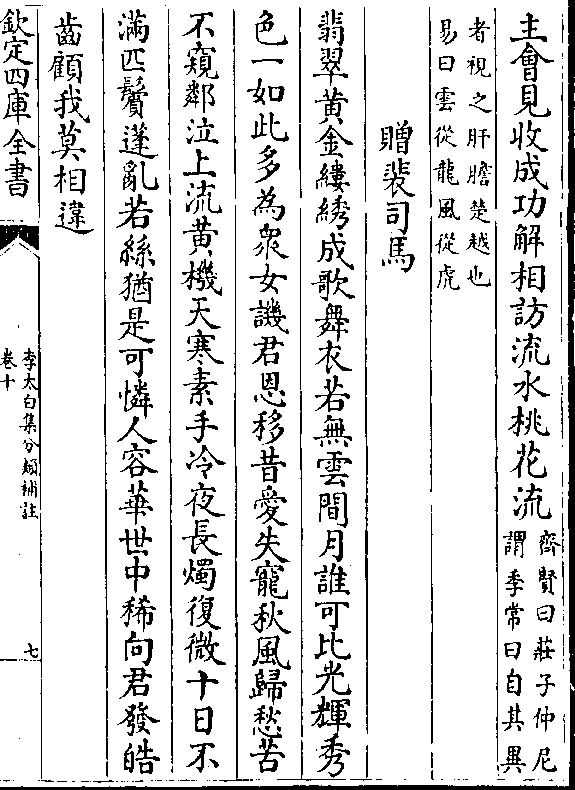 主會見收成功解相訪流水桃花流
齊賢曰莊子仲尼
謂季常曰自其異
者視之肝膽楚越也
易曰雲從龍風從虎
贈裴司馬
翡翠黄金縷綉成歌舞衣若無雲間月誰可比光輝秀
色一如此多為衆女譏君恩移昔愛失寵秋風歸愁苦
不窺鄰泣上流黄機天寒素手冷夜長燭復微十日不
滿匹鬢蓬亂若絲猶是可憐人容華世中稀向君發皓
齒顧我莫相違
欽定四庫全書
李太白集分類補註
卷十
七